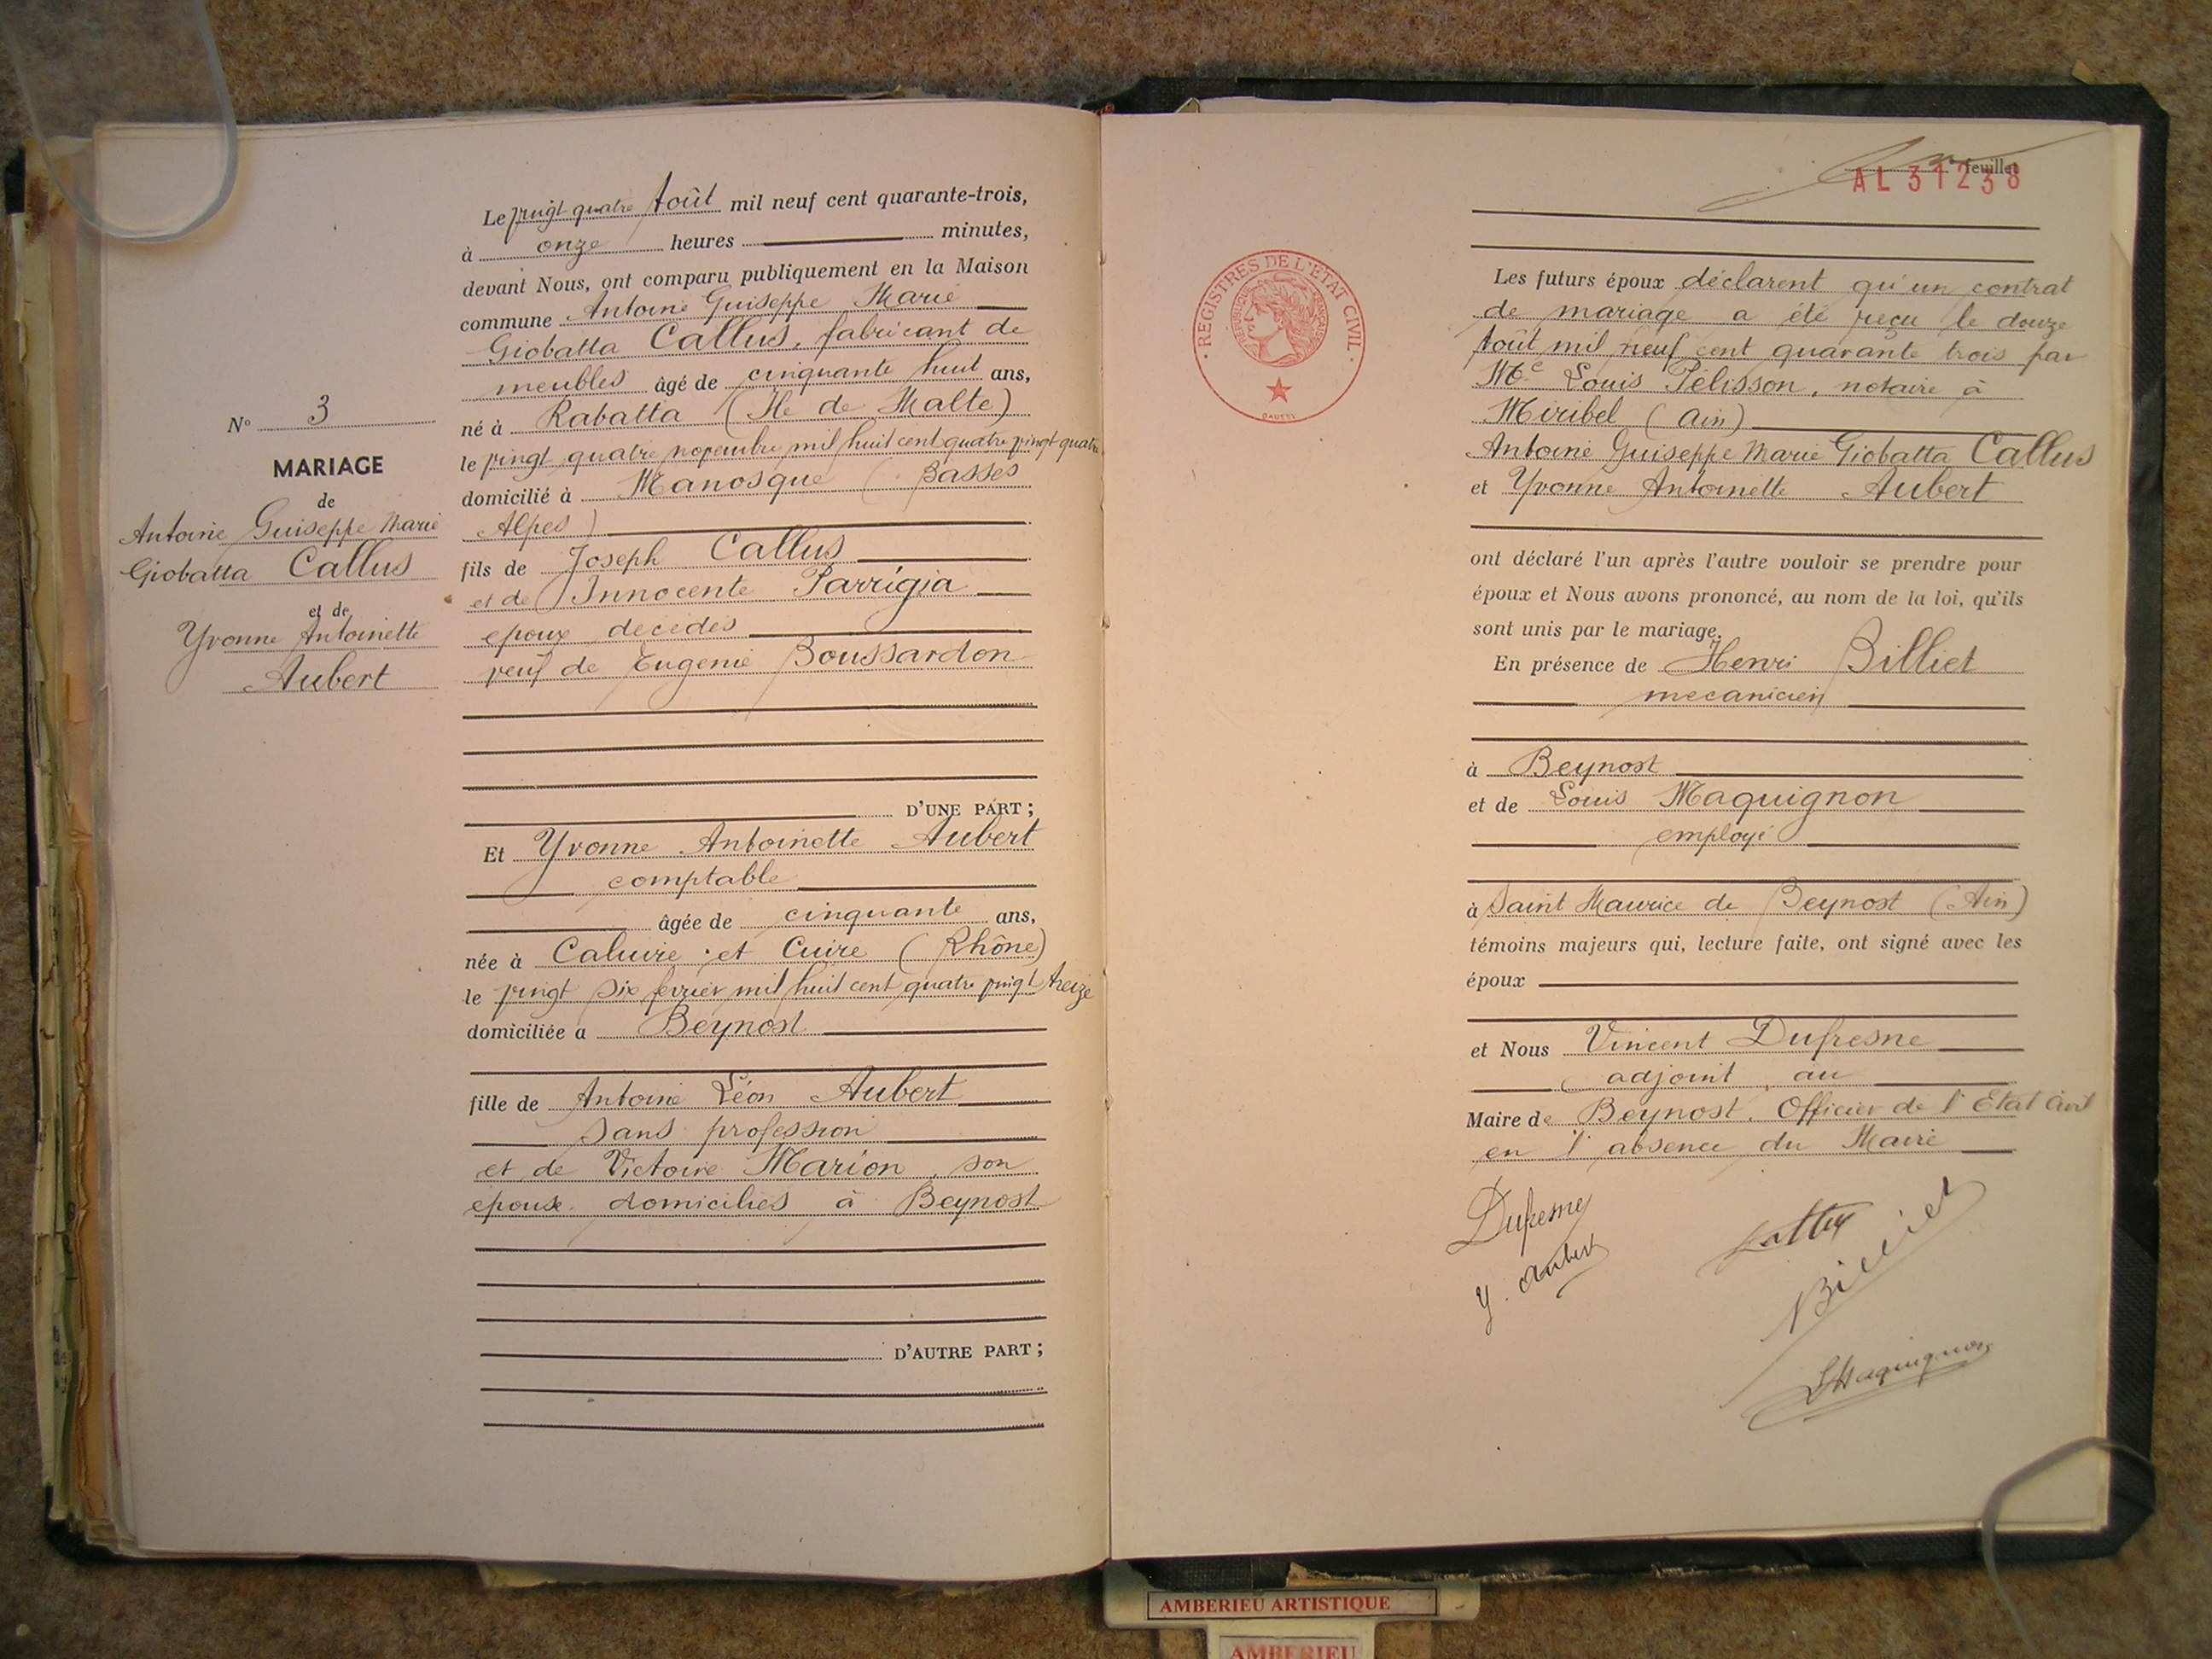 N° 3
MARIAGE
de
Antoine Guiseppe Marie
Giobatta Callus
et de
Yvonne Antoinette
Aubert
Le vingt quatre Août mil neuf cent quarante-trois,
à onze heures minutes,
devant Nous, ont comparu publiquement en la Maison
commune Antoine Guiseppe Marie
Giobatta Callus, fabricant de
meubles âgé de cinquante huit ans,
né à Rabatta (Ile de Malte)
le vingt quatre novembre mil huit cent quatre vingt quatre
domicilié à Manosque (Basses
Alpes)
fils de Joseph Callus
et de Innocente Parrigia
epoux décédés
veuf de Eugenie Boussardon
D'UNE PART ;
Et Yvonne Antoinette Aubert
comptable
âgée de cinquante ans,
née à Caluire et Cuire (Rhône)
le vingt six fevrier mil huit cent quatre vingt treize
domiciliée à Beynost
fille de Antoine Léon Aubert
sans profession
et de Victoire Marion, son
épouse domiciliés à Beynost
D'AUTRE PART ;
feuillet
AL 31238
REGISTRES DE L'ÉTAT CIVIL
RÉPUBLIQUE FRANÇAISE
Les futurs époux déclarent qu'un contrat
de mariage a été reçu le douze
Août mil neuf cent quarante trois par
Me Louis Pélisson, notaire à
Miribel (Ain)
Antoine Guiseppe Marie Giobatta Callus
et Yvonne Antoinette Aubert
ont déclaré l'un après l'autre vouloir se prendre pour
époux et Nous avons prononcé, au nom de la loi, qu'ils
sont unis par le mariage.
En présence de Henri Billiet
mecanicien
à Beynost
et de Louis Maquignon
employé
à Saint Maurice de Beynost (Ain)
témoins majeurs qui, lecture faite, ont signé avec les
époux
et Nous Vincent Dufresne
adjoint au
Maire de Beynost. Officier de l'Etat Civil
en l'absence du Maire
Dufresne
Callus
Y. Aubert
Billiet
LMaquignon
AMBERIEU ARTISTIQUE
AMBERIEU